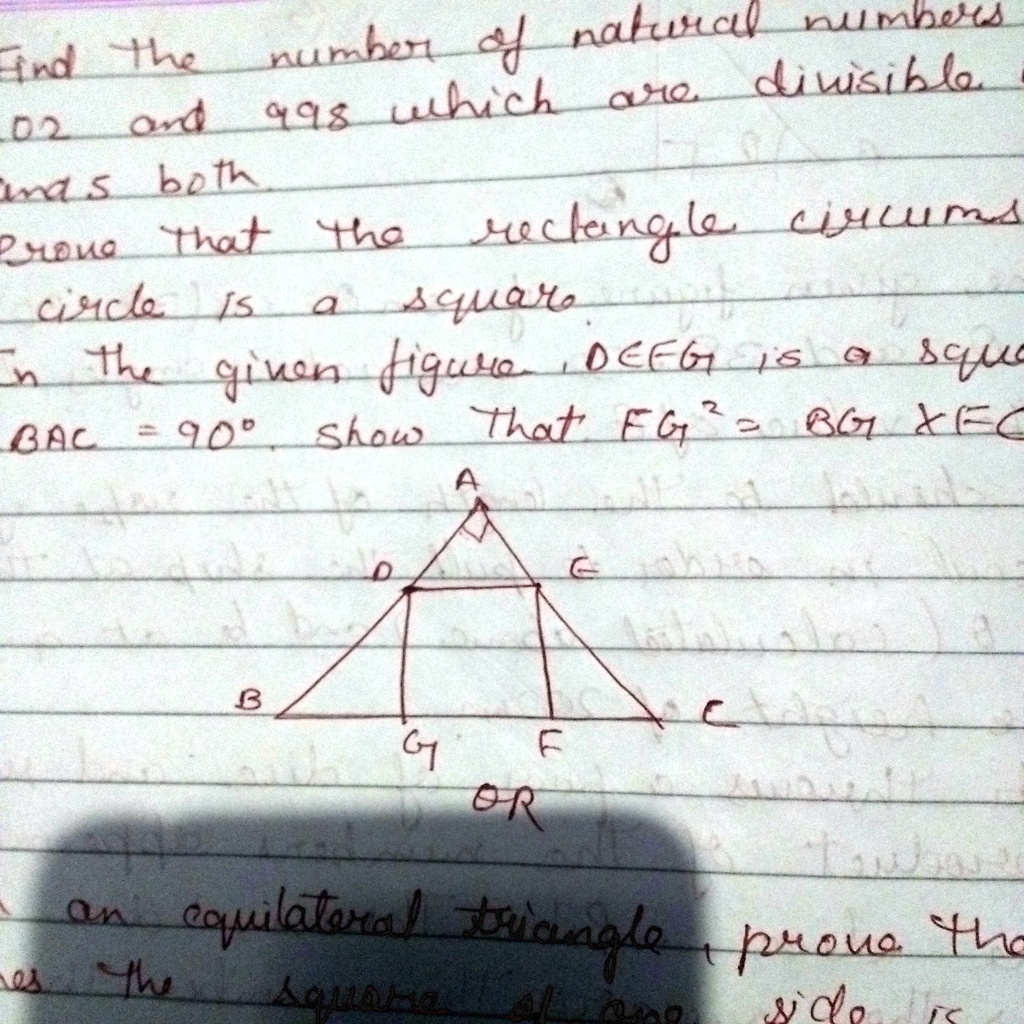 Find the number of natural numbers
02 and 998 which are divisible
and 5 both
Prove that the rectangle circums
circle is a square
In the given figure, DEFG is a squa
BAC = 90°. Show that FG² = BG × FC
A
D E
B C
G F
OR
an equilateral triangle, prove tha
es the square of one side is